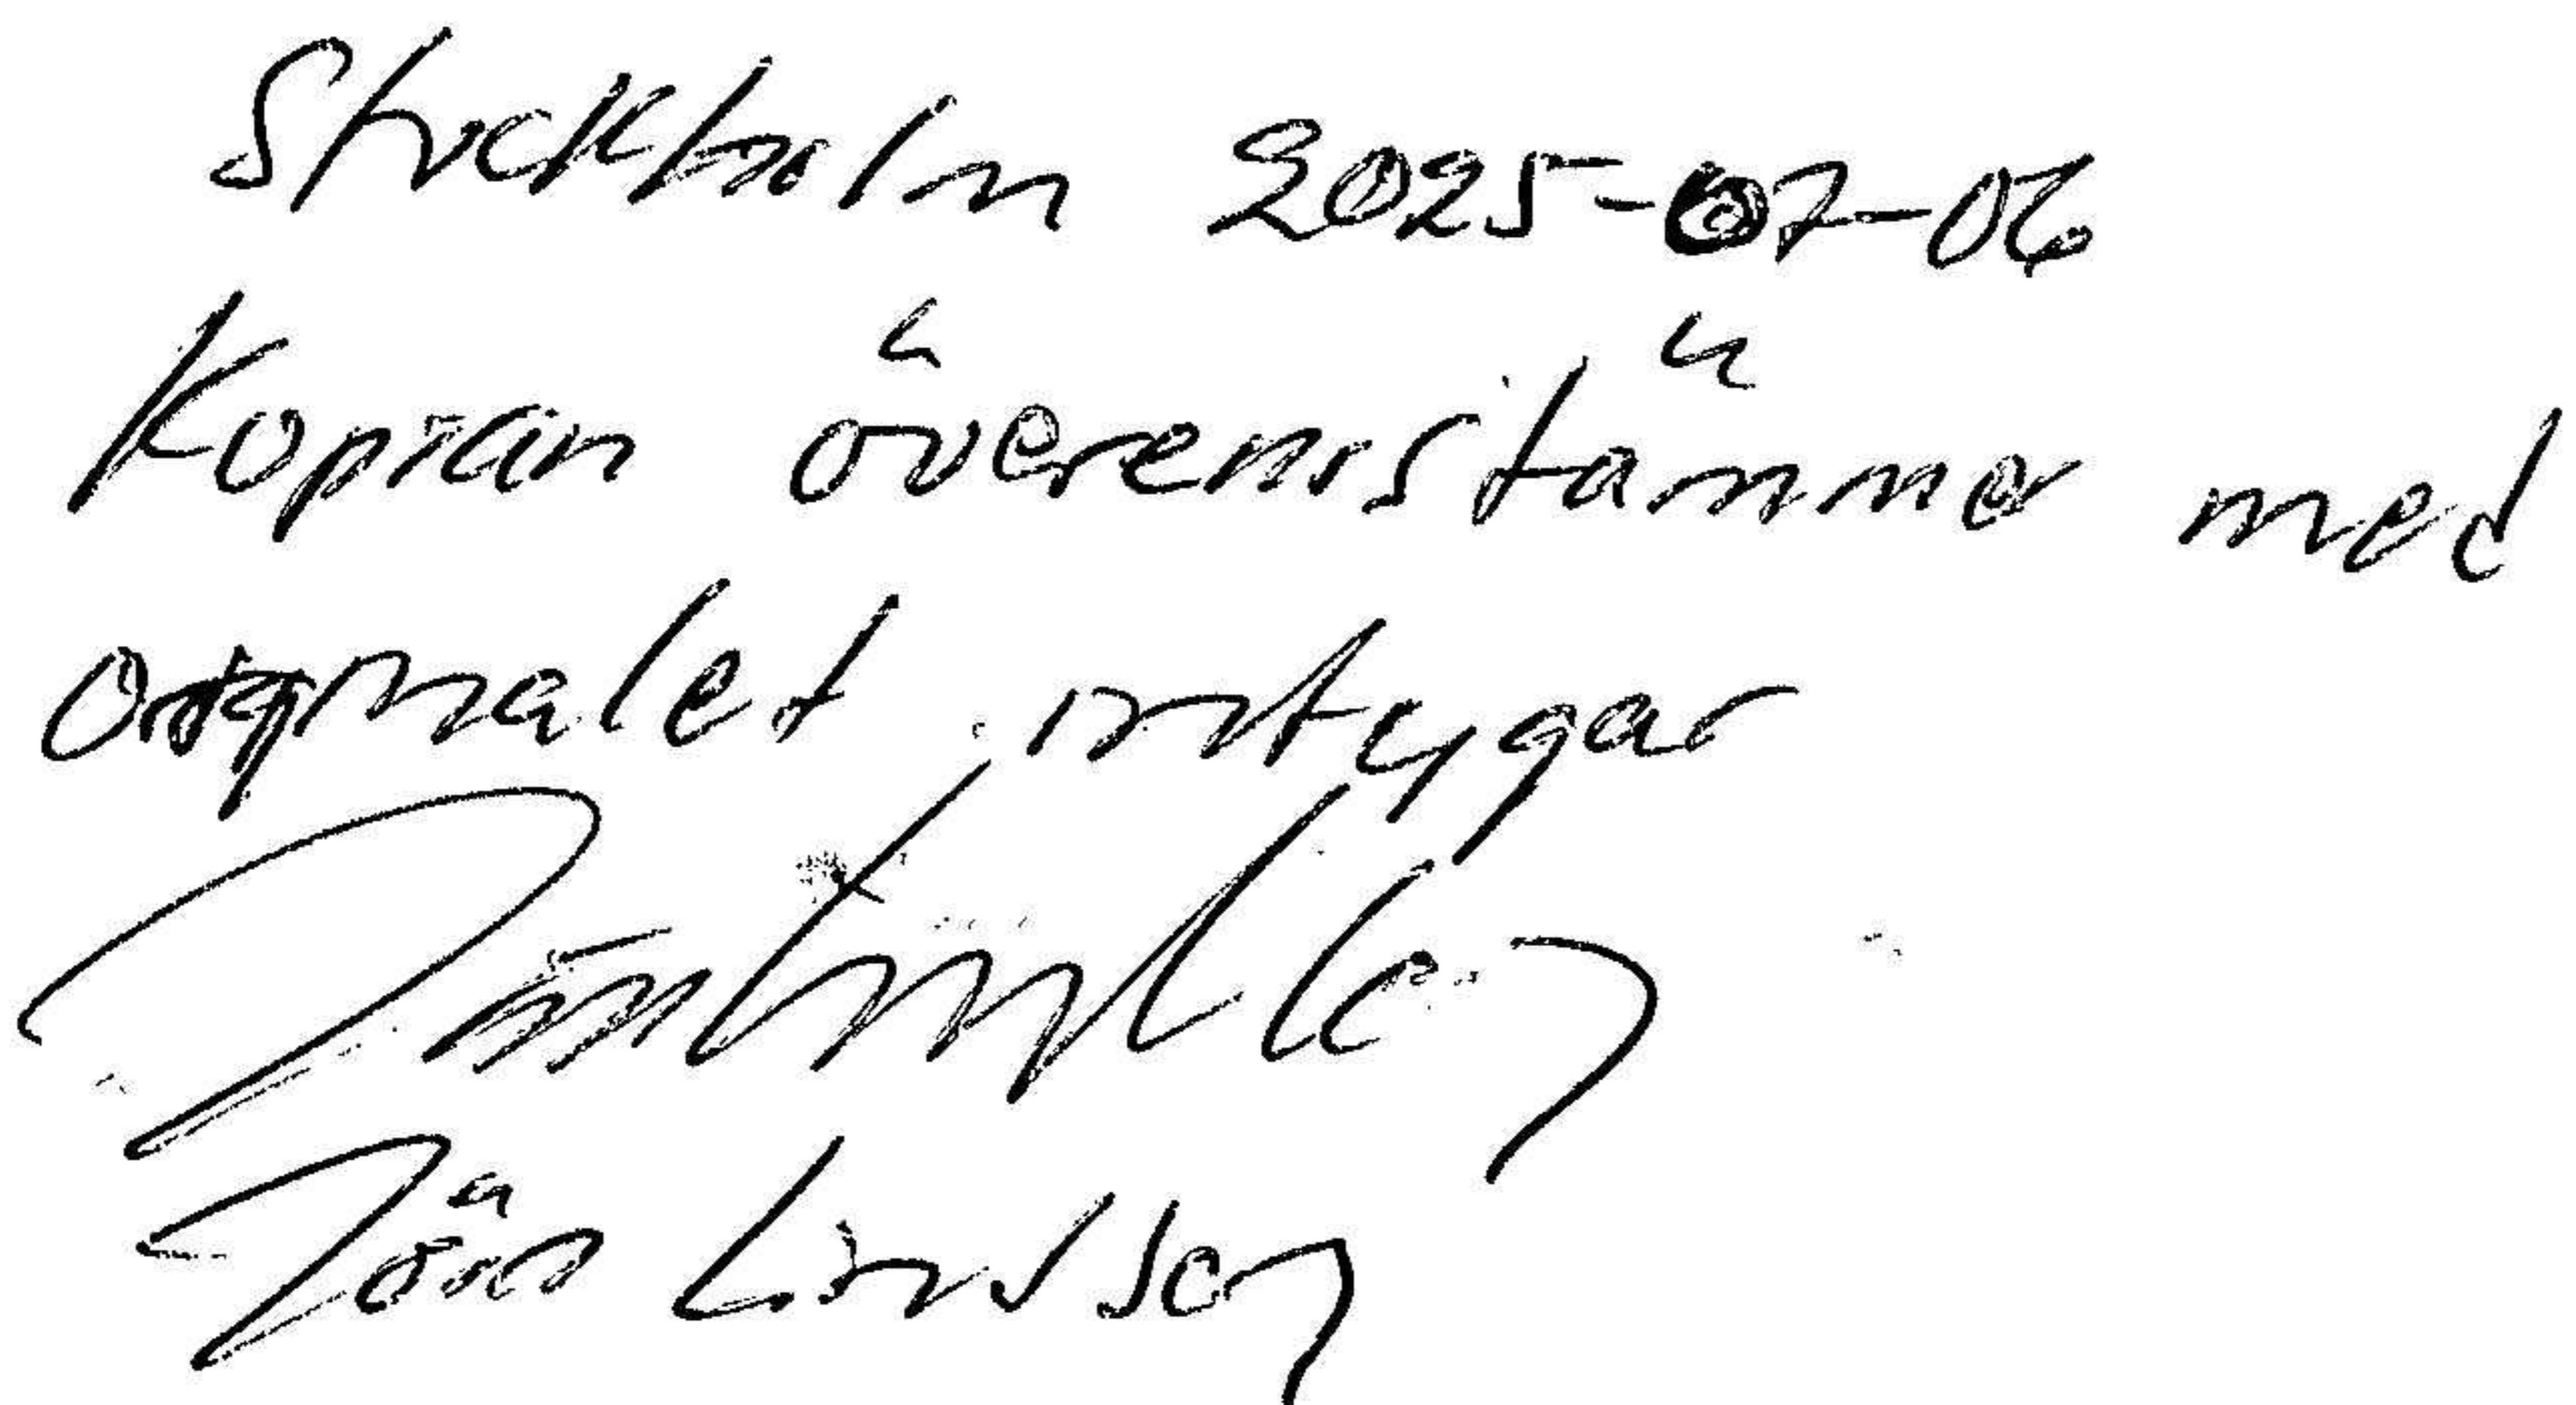 Stockholm 2025-07-06
Kopian överensstämmer med
originalet intygar
Jörn